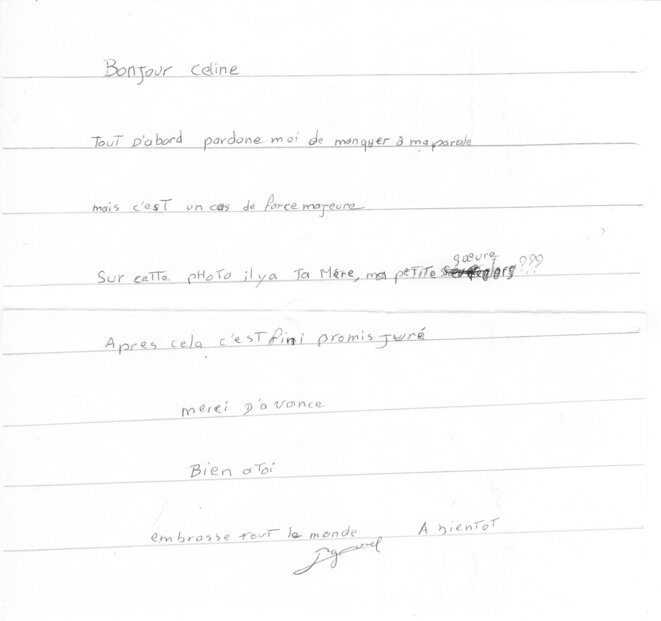 Bonjour Celine
Tout D'abord pardone moi de manquer à ma parole
mais c'est un cas de force majeure
Sur cette photo il y a Ta Mère, ma petite sœure alors ???
Apres cela c'est fini promis juré
merci D'avance
Bien a Toi
embrasse tout le monde A bientot